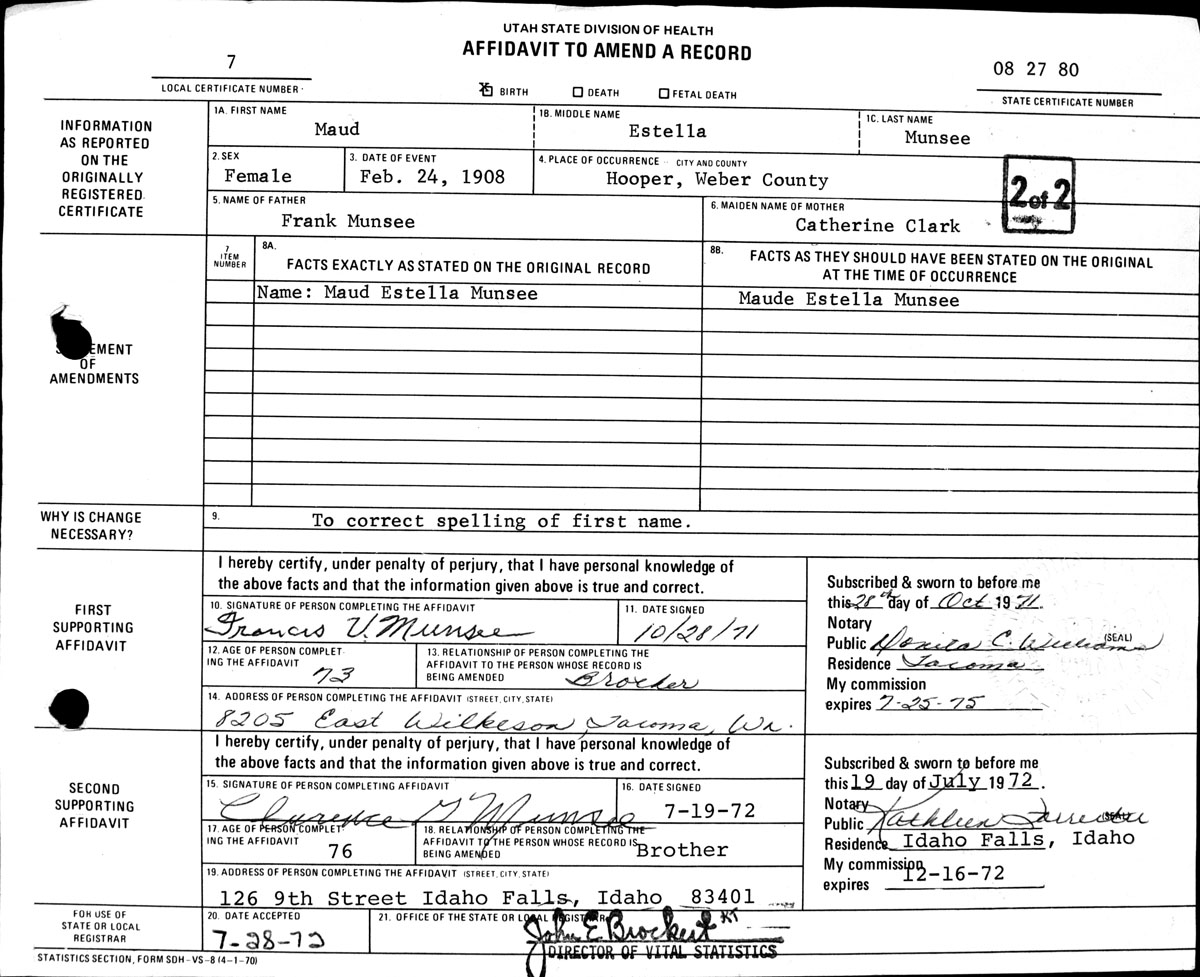 UTAH STATE DIVISION OF HEALTH
AFFIDAVIT TO AMEND A RECORD
7
LOCAL CERTIFICATE NUMBER
☒ BIRTH ☐ DEATH ☐ FETAL DEATH
08 27 80
STATE CERTIFICATE NUMBER
INFORMATION
AS REPORTED
ON THE
ORIGINALLY
REGISTERED
CERTIFICATE
1A. FIRST NAME
Maud
1B. MIDDLE NAME
Estella
1C. LAST NAME
Munsee
2. SEX
Female
3. DATE OF EVENT
Feb. 24, 1908
4. PLACE OF OCCURRENCE CITY AND COUNTY
Hooper, Weber County
2 of 2
5. NAME OF FATHER
Frank Munsee
6. MAIDEN NAME OF MOTHER
Catherine Clark
EMENT
OF
AMENDMENTS
7
ITEM
NUMBER
8A.
FACTS EXACTLY AS STATED ON THE ORIGINAL RECORD
8B.
FACTS AS THEY SHOULD HAVE BEEN STATED ON THE ORIGINAL
AT THE TIME OF OCCURRENCE
Name: Maud Estella Munsee
Maude Estella Munsee
WHY IS CHANGE
NECESSARY?
9.
To correct spelling of first name.
FIRST
SUPPORTING
AFFIDAVIT
I hereby certify, under penalty of perjury, that I have personal knowledge of
the above facts and that the information given above is true and correct.
10. SIGNATURE OF PERSON COMPLETING THE AFFIDAVIT
Francis V. Munsee
11. DATE SIGNED
10/28/71
12. AGE OF PERSON COMPLET-
ING THE AFFIDAVIT
73
13. RELATIONSHIP OF PERSON COMPLETING THE
AFFIDAVIT TO THE PERSON WHOSE RECORD IS
BEING AMENDED
Brother
14. ADDRESS OF PERSON COMPLETING THE AFFIDAVIT (STREET, CITY, STATE)
8205 East Wilkeson, Tacoma, Wn.
Subscribed & sworn to before me
this 28th day of Oct 1971.
Notary
Public C. (SEAL)
Residence Tacoma
My commission
expires 7-25-75
SECOND
SUPPORTING
AFFIDAVIT
I hereby certify, under penalty of perjury, that I have personal knowledge of
the above facts and that the information given above is true and correct.
15. SIGNATURE OF PERSON COMPLETING AFFIDAVIT
Clarence G Munsee
16. DATE SIGNED
7-19-72
17. AGE OF PERSON COMPLET-
ING THE AFFIDAVIT
76
18. RELATIONSHIP OF PERSON COMPLETING THE
AFFIDAVIT TO THE PERSON WHOSE RECORD IS
BEING AMENDED
Brother
19. ADDRESS OF PERSON COMPLETING THE AFFIDAVIT (STREET, CITY, STATE)
126 9th Street Idaho Falls, Idaho 83401
Subscribed & sworn to before me
this 19 day of July 1972.
Notary
Public Kathleen
Residence Idaho Falls, Idaho
My commission
expires 12-16-72
FOR USE OF
STATE OR LOCAL
REGISTRAR
20. DATE ACCEPTED
7-28-72
21. OFFICE OF THE STATE OR LOCAL REGISTRAR
John E Brockert KT
DIRECTOR OF VITAL STATISTICS
STATISTICS SECTION, FORM SDH-VS-8 (4-1-70)